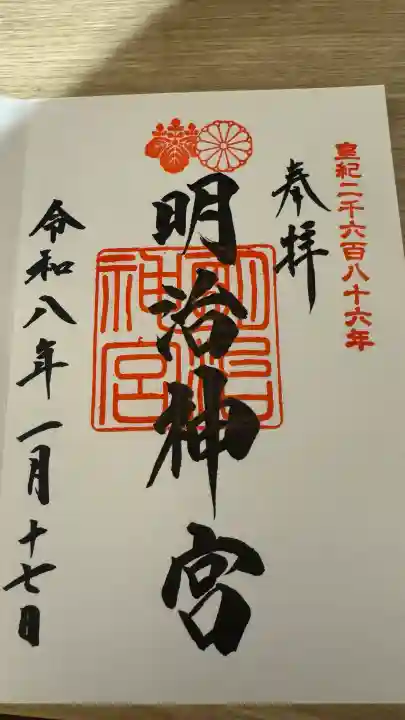 皇紀二千六百八十六年
奉拝
明治神宮
明治神宮
令和八年一月十七日